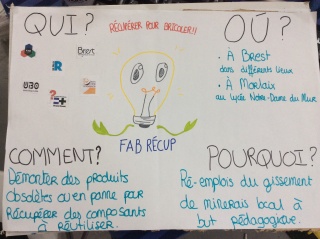 QUI?
RÉCUPÉRER POUR BRICOLER!!
OÚ?
Brest
UBO
• À Brest
dans différents lieux
• À Morlaix
au lycée Notre-Dame du Mur
FAB RÉCUP
COMMENT?
Démonter des produits
obsolètes ou en panne pour
Récupérer des composants
à réutiliser.
POURQUOI?
Ré-emplois du gissement
de minerais local à
but pédagogique.